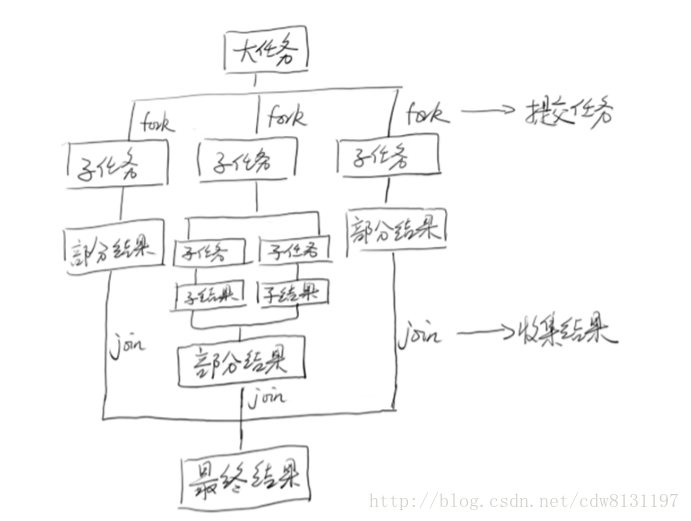 大任务
fork fork fork 提交任务
子任务 子任务 子任务
部分结果 部分结果
子任务 子任务
子结果 子结果
join join 收集结果
部分结果
join
最终结果
http://blog.csdn.net/cdw8131197